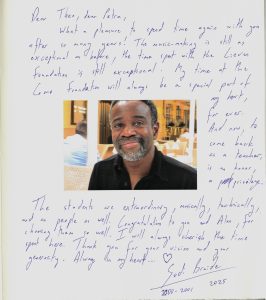 Dear Theo, dear Petra,
What a pleasure to spend time again with you
after so many years! The music-making is still as
exceptional as before, the time spent with the Lieven
Foundation is still exceptional. My time at the
Foundation will always be a special part of
my heart,
for ever.
And now, to
come back
as a teacher,
is an honor,
a privilege.
The students are extraordinary, musically, technically,
and as people as well. Congratulations to you and
choosing them so well. I will always cherish the time
spent here. Thank you for your vision and your
generosity. Always in my heart...
2000-2001 2025